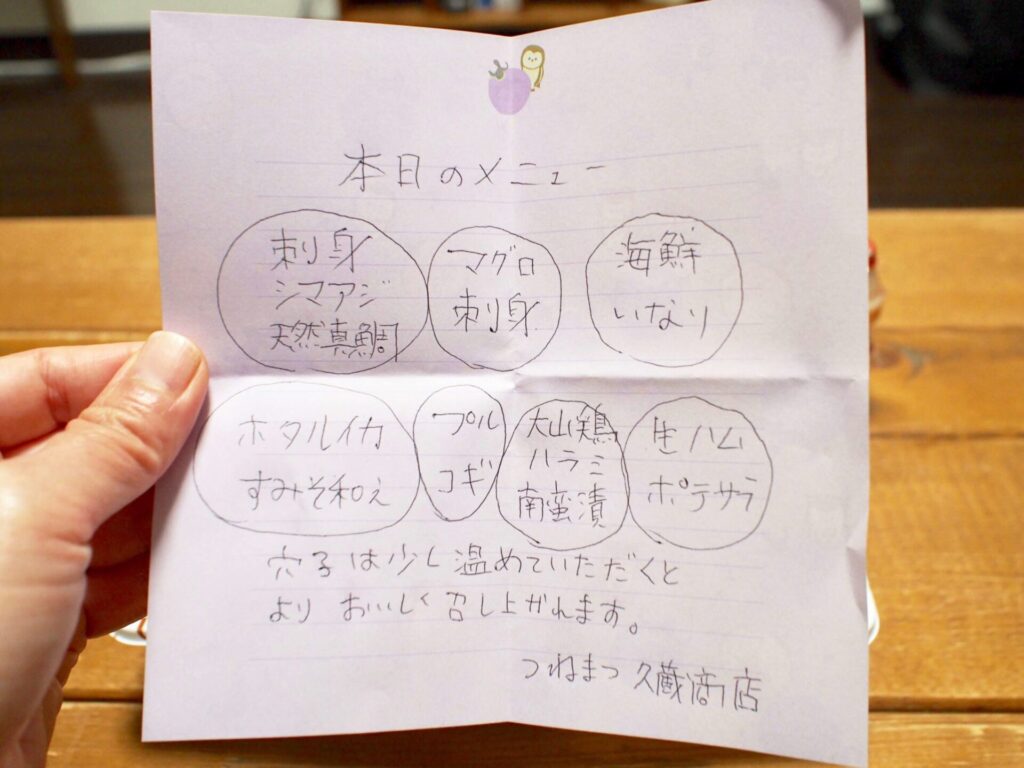 本日のメニュー
刺身
シマアジ
天然真鯛
マグロ
刺身
海鮮
いなり
ホタルイカ
すみそ和え
プル
コギ
大山鶏
ハラミ
南蛮漬
生ハム
ポテサラ
穴子は少し温めていただくと
より おいしく召し上がれます。
つねまつ 久蔵商店